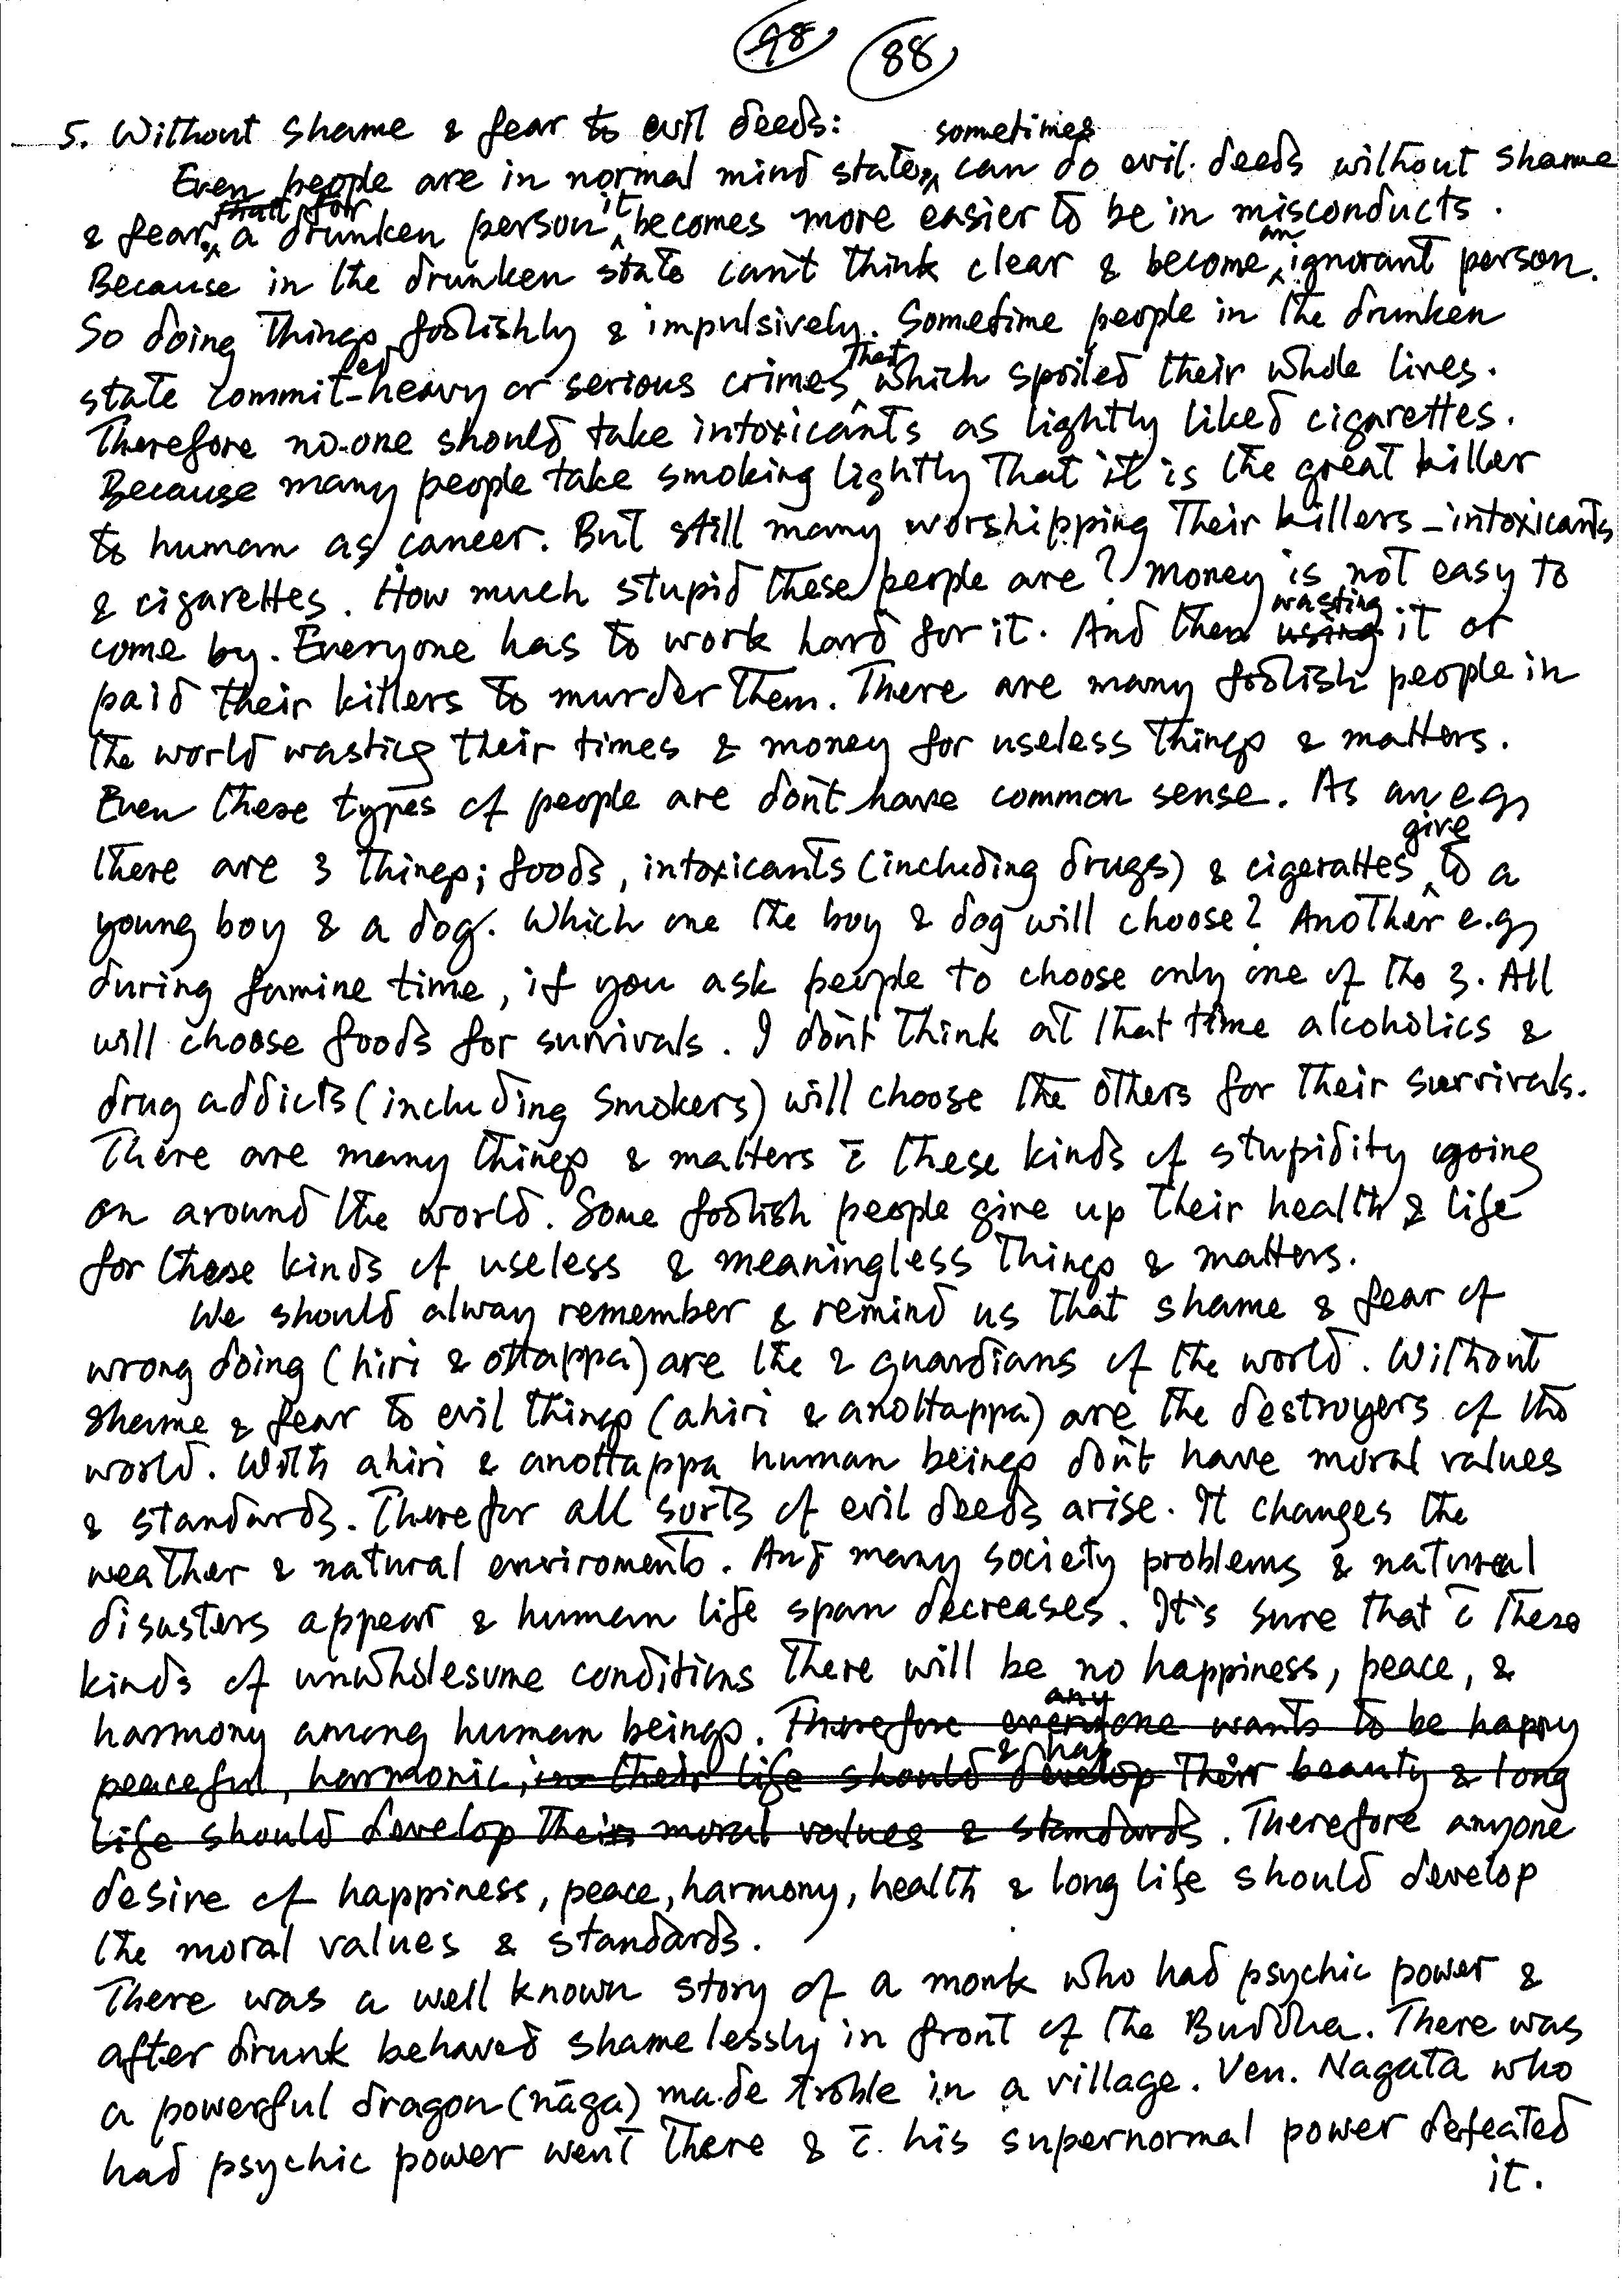 98 88
5. Without shame & fear to evil deeds:
Even people are in normal mind states, sometimes can do evil deeds without shame
& fear, a drunken person it becomes more easier to be in misconducts.
Because in the drunken state can't think clear & become an ignorant person.
So doing things foolishly & impulsively. Sometime people in the drunken
state commited heavy or serious crimes that which spoiled their whole lives.
Therefore no-one should take intoxicants as lightly liked cigarettes.
Because many people take smoking lightly that it is the great killer
to human as cancer. But still many worshipping their killers – intoxicants
& cigarettes. How much stupid these people are? Money is not easy to
come by. Everyone has to work hard for it. And then wasting it or
paid their killers to murder them. There are many foolish people in
the world wasting their times & money for useless things & matters.
Even these types of people are don't have common sense. As an eg,
there are 3 things; foods, intoxicants (including drugs) & cigerattes give to a
young boy & a dog. Which one the boy & dog will choose? Another e.g,
during famine time, if you ask people to choose only one of the 3. All
will choose foods for survivals. I don't think at that time alcoholics &
drug addicts (including smokers) will choose the others for their survivals.
There are many things & matters c̄ these kinds of stupidity going
on around the world. Some foolish people give up their health & life
for these kinds of useless & meaningless things & matters.
We should alway remember & remind us that shame & fear of
wrong doing (hiri & ottappa) are the 2 guardians of the world. Without
shame & fear to evil things (ahiri & anottappa) are the destroyers of the
world. With ahiri & anottappa human beings don't have moral values
& standards. Therefor all sorts of evil deeds arise. It changes the
weather & natural enviroments. And many society problems & natural
disasters appear & human life span decreases. It's sure that c̄ these
kinds of unwholesome conditions there will be no happiness, peace, &
harmony among human beings. Therefore any everyone wants to be happy
peaceful, harmonic, in their life should develop & has their beauty & long
life should develop their moral values & standards. Therefore anyone
desire of happiness, peace, harmony, health & long life should develop
the moral values & standards.
There was a well known story of a monk who had psychic power &
after drunk behaved shamelessly in front of the Buddha. There was
a powerful dragon (nāga) made troble in a village. Ven. Nagata who
had psychic power went there & c̄. his supernormal power defeated
it.